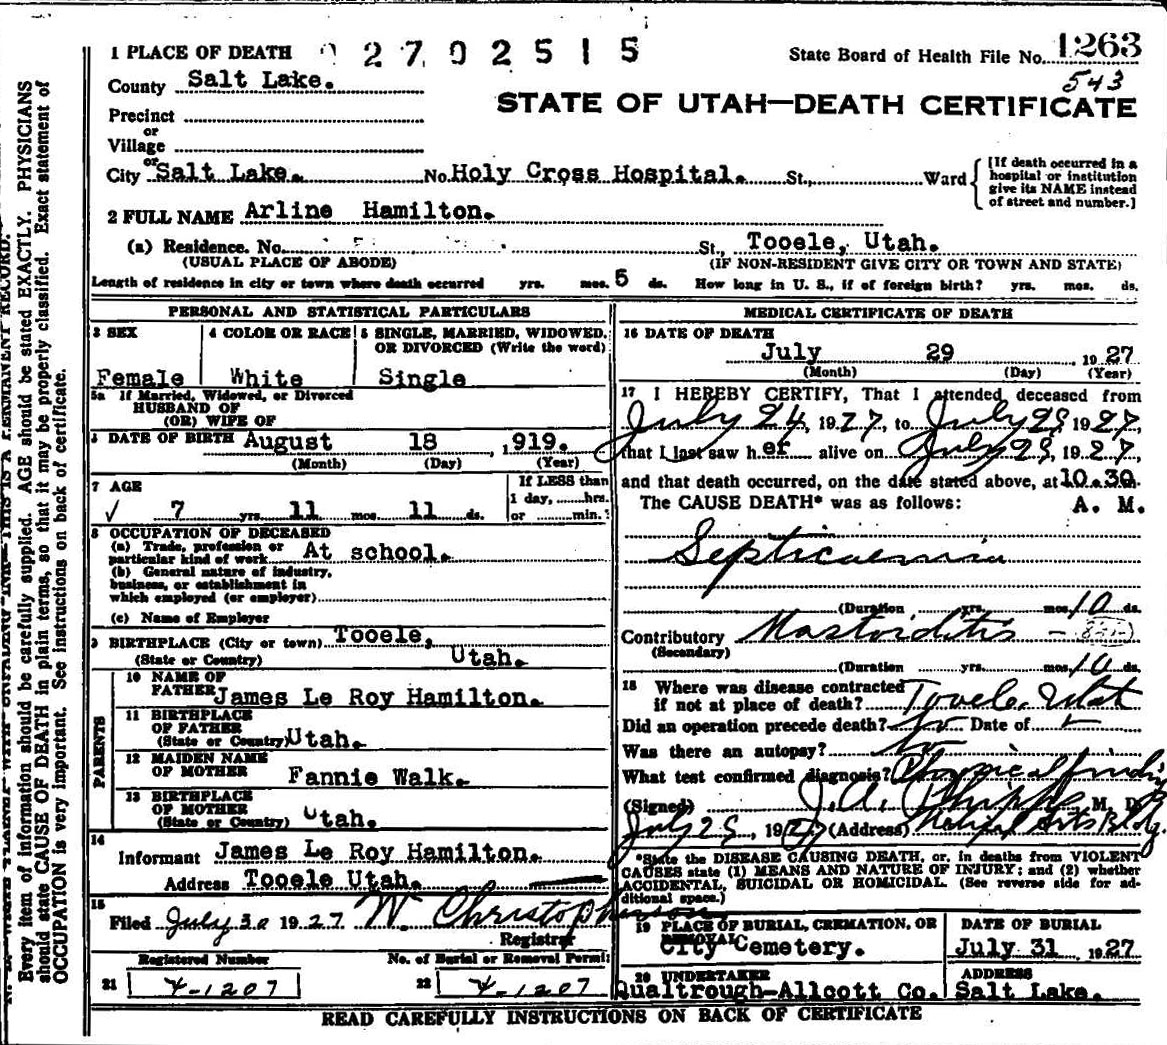 1 PLACE OF DEATH 2 7 0 2 5 1 5 State Board of Health File No. 1263
543
County Salt Lake.
STATE OF UTAH—DEATH CERTIFICATE
Precinct
or
Village
or
City Salt Lake. No. Holy Cross Hospital. St., Ward [If death occurred in a hospital or institution give its NAME instead of street and number.]
2 FULL NAME Arline Hamilton.
(a) Residence. No. St., Tooele, Utah.
(USUAL PLACE OF ABODE) (IF NON-RESIDENT GIVE CITY OR TOWN AND STATE)
Length of residence in city or town where death occurred yrs. mos. 5 ds. How long in U. S., if of foreign birth? yrs. mos. ds.
PERSONAL AND STATISTICAL PARTICULARS
3 SEX 4 COLOR OR RACE 5 SINGLE, MARRIED, WIDOWED, OR DIVORCED (Write the word)
Female White Single
5a If Married, Widowed, or Divorced
HUSBAND OF
(OR) WIFE OF
DATE OF BIRTH August 18 , 919.
(Month) (Day) (Year)
7 AGE If LESS than
1 day, hrs.
7 yrs. 11 mos. 11 ds. or min.?
8 OCCUPATION OF DECEASED
(a) Trade, profession or
particular kind of work At school.
(b) General nature of industry,
business, or establishment in
which employed (or employer)
(c) Name of Employer
9 BIRTHPLACE (City or town) Tooele,
(State or Country) Utah.
PARENTS
10 NAME OF
FATHER James Le Roy Hamilton.
11 BIRTHPLACE
OF FATHER
(State or Country) Utah.
12 MAIDEN NAME
OF MOTHER Fannie Walk.
13 BIRTHPLACE
OF MOTHER
(State or Country) Utah.
14
Informant James Le Roy Hamilton.
Address Tooele Utah.
15
Filed July 30 1927 W. Christopherson
Registrar
Registered Number No. of Burial or Removal Permit
21 4-1207 22 4-1207
MEDICAL CERTIFICATE OF DEATH
16 DATE OF DEATH
July 29 , 1927
(Month) (Day) (Year)
17 I HEREBY CERTIFY, That I attended deceased from
July 24, 1927, to July 29 1927,
that I last saw her alive on July 29, 1927
and that death occurred, on the date stated above, at 10.30
The CAUSE DEATH* was as follows: A. M.
Septicaemia
(Duration yrs. mos. 10 ds.
Contributory Mastoiditis
(Secondary)
(Duration yrs. mos. 10 ds.
18 Where was disease contracted
if not at place of death? Tooele, Utah
Did an operation precede death? No Date of
Was there an autopsy? No
What test confirmed diagnosis? Physical findings
(Signed) J. A. Phipps M. D.
July 29, 1927 (Address) Medical Arts Bldg.
*State the DISEASE CAUSING DEATH, or, in deaths from VIOLENT
CAUSES state (1) MEANS AND NATURE OF INJURY; and (2) whether
ACCIDENTAL, SUICIDAL OR HOMICIDAL. (See reverse side for ad-
ditional space.)
19 PLACE OF BURIAL, CREMATION, OR REMOVAL DATE OF BURIAL
City Cemetery. July 31 , 1927
20 UNDERTAKER ADDRESS
Qualtrough-Allcott Co. Salt Lake.
READ CAREFULLY INSTRUCTIONS ON BACK OF CERTIFICATE
Every item of information should be carefully supplied. AGE should be stated EXACTLY. PHYSICIANS
should state CAUSE OF DEATH in plain terms, so that it may be properly classified. Exact statement of
OCCUPATION is very important. See instructions on back of certificate.